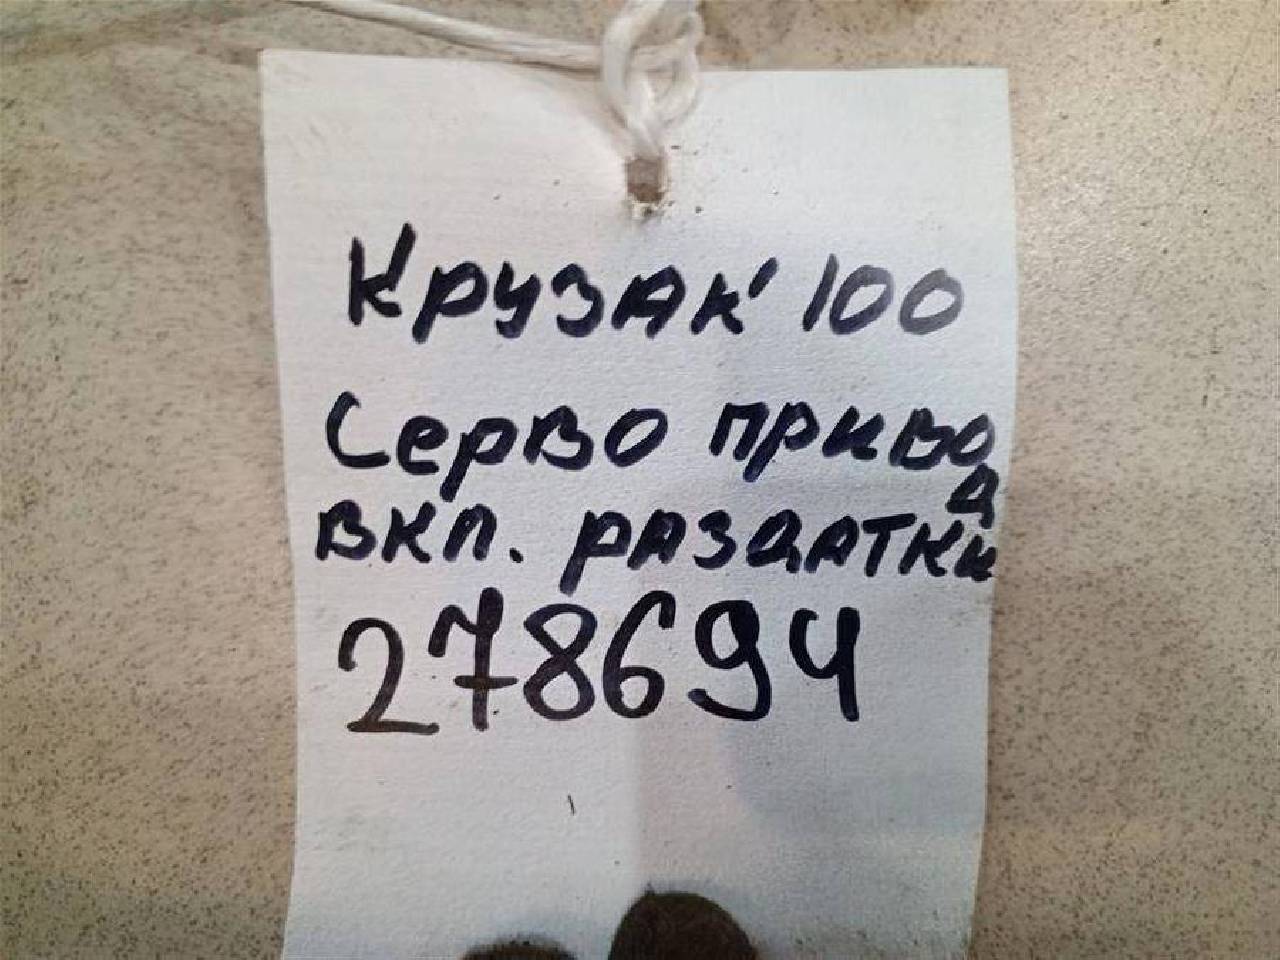 Крузак 100
Серво привод
вкл. раздатки
278694